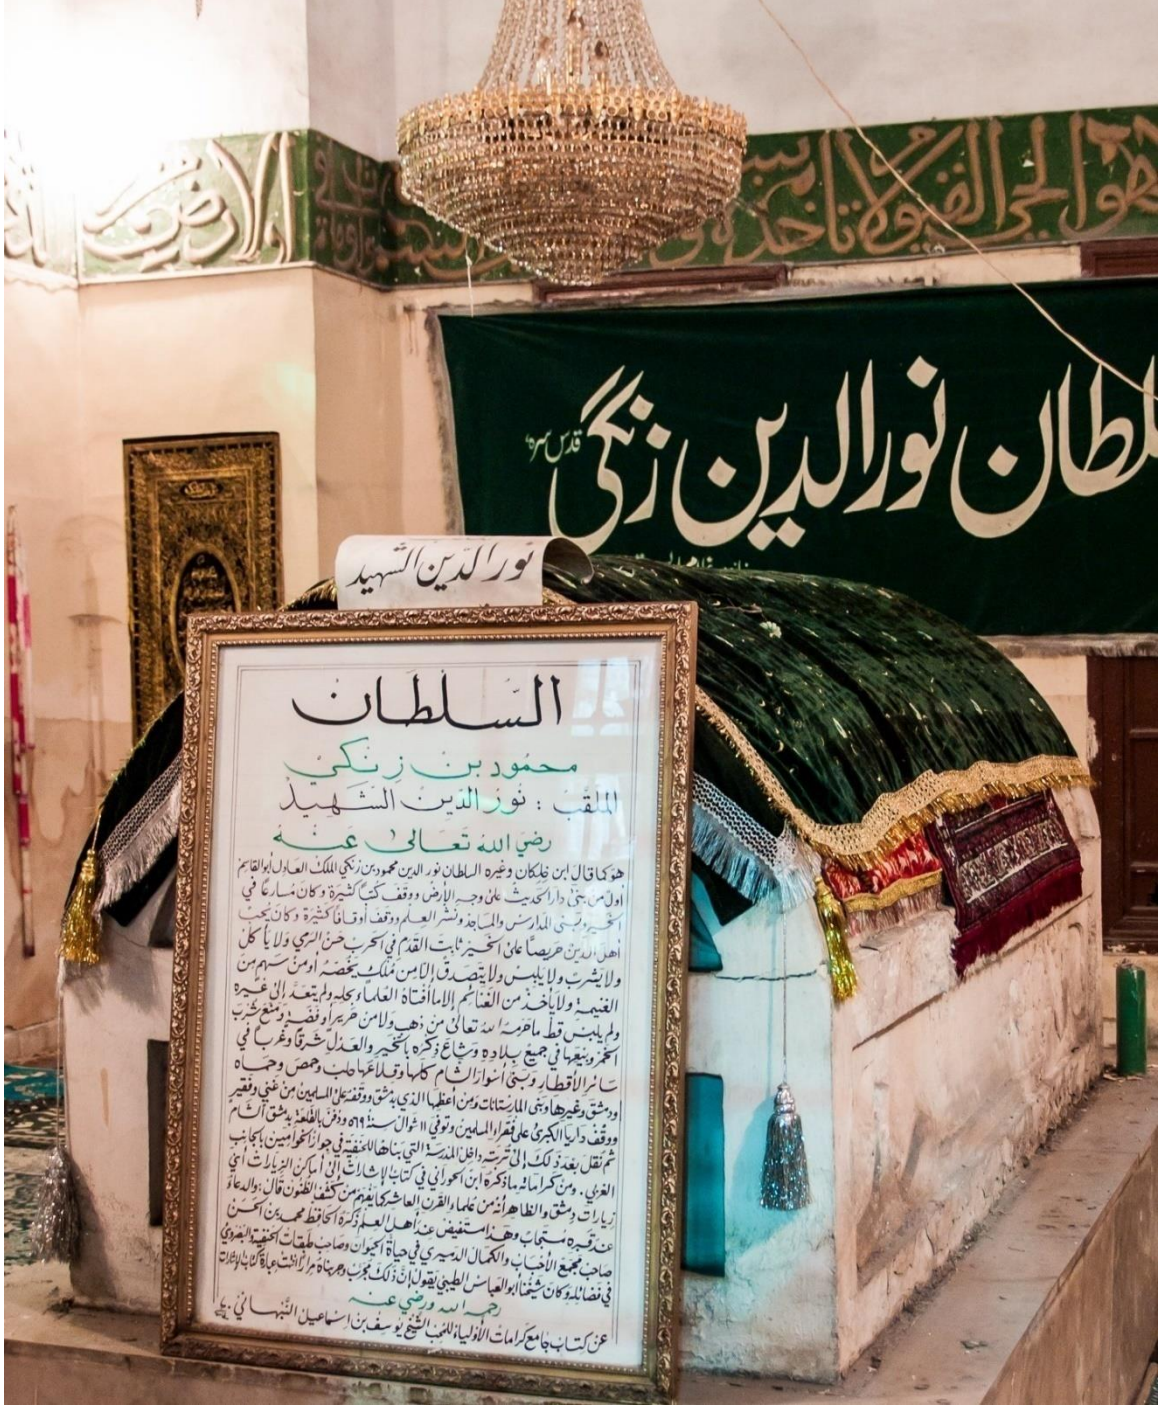 الأرض
هو الحي القيوم لا تأخذه سنة
سلطان نور الدين زنكي قدس سره
نور الدين الشهيد
السلطان
محمود بن زنكي
الملقب : نور الدين الشهيد
رضي الله تعالى عنه
هو كما قال ابن خلكان وغيره السلطان نور الدين محمود بن زنكي الملك العادل أبو القاسم
أول من بنى دار الحديث على وجه الأرض ووقف كتباً كثيرة وكان مسارعاً في
الخير وبنى المدارس والمساجد ونشر العلم ووقف أوقافاً كثيرة وكان يحب
أهل الدين حريصاً على الخير ثابت القدم في الحرب حسن الرمي ولا يأكل
ولا يشرب ولا يلبس ولا يتصدق إلا من ملك يخصه أو من سهم من
الغنيمة ولا يأخذ من الغنائم إلا ما أفتاه العلماء بحله ولم يتعد إلى غيره
ولم يلبس قط ما حرمه الله تعالى من ذهب ولا من حرير أو فضة ومنع شرب
الخمر وبيعها في جميع بلاده وشاع ذكره بالخير والعدل شرقاً وغرباً في
سائر الأقطار وبنى أسوار الشام كلها وقلاعها حلب وحمص وحماه
ودمشق وغيرها وبنى المارستانات ومن أعظمها الذي بدمشق ووقفه على المسلمين من غني وفقير
ووقف داريا الكبرى على فقراء المسلمين وتوفي ١١ شوال سنة ٥٦٩ ودفن بالقلعة بدمشق الشام
ثم نقل بعد ذلك إلى تربته داخل المدرسة التي بناها للحنفية في جوار الخواصين بالجانب
الغربي . ومن كراماته ما ذكره ابن الحوراني في كتاب الإشارات إلى أماكن الزيارات أي
زيارات دمشق والظاهر أنه من علماء القرن العاشر كما يفهم من كشف الظنون قال : والدعاء
عند قبره مستجاب وهذا مستفيض عند أهل العلم ذكره الحافظ محمد بن الحسن
صاحب مجمع الأحباب والكمال الدميري في حياة الحيوان وصاحب طبقات الحنفية والبصروي
في فضائله وكان شيخنا أبو العباس الطيبي يقول إن ذلك مجرب وجربناه مراراً انتهت عبارة كتاب الإشارات
رحمه الله ورضي عنه
عن كتاب جامع كرامات الأولياء للمحب الشيخ يوسف بن إسماعيل النبهاني